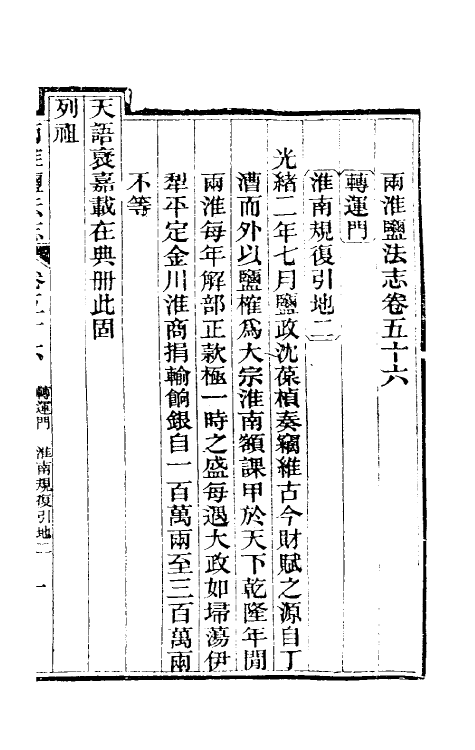 兩淮鹽法志卷五十六
轉運門
淮南規復引地二
光緒二年七月鹽政沈葆楨奏竊維古今財賦之源自丁
漕而外以鹽榷爲大宗淮南額課甲於天下乾隆年閒
兩淮每年解部正款極一時之盛每遇大政如埽蕩伊
犁平定金川淮商捐輸餉銀自一百萬兩至三百萬兩
不等
天語襃嘉載在典册此固
列祖
兩淮鹽法志 卷五十六 轉運門 淮南規復引地二 一